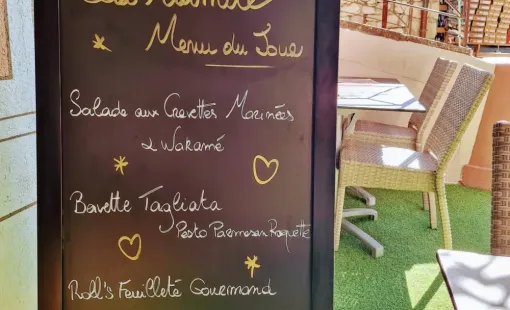 Menu du Jour
Salade aux Crevettes Marinées
& Wakamé
Bavette Tagliata
Pesto Parmesan Roquette
Roll's Feuilleté Gourmand